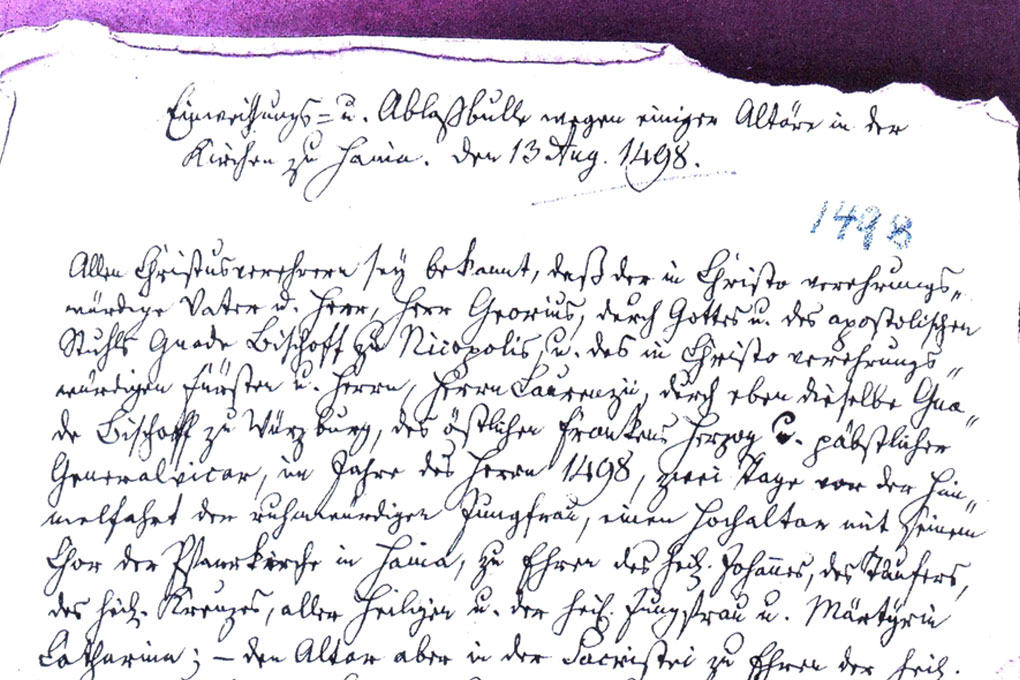 Einweihungs- u. Ablaßbulle wegen einiger Altäre in der
Kirchen zu Haina. Den 13 Aug. 1498.
1498
Allen Christusverehrern sey bekannt, daß der in Christo verehrungs„
würdige Vater u. Herr, Herr Georius, durch Gottes u. des apostolischen
Stuhls Gnade Bischoff zu Nicopolis, u. des in Christo verehrungs„
würdigen Fürsten u. Herrn, Herrn Laurenzii, durch eben dieselbe Gna„
de Bischoff zu Würzburg, des östlichen Frankens Herzog u. päbstlicher
Generalvicar, im Jahre des Herrn 1498, zwei Tage vor der Him„
melfahrt der ruhmwürdigen Jungfrau, einen Hochaltar mit seinem
Chor der Pfarrkirche in Haina, zu Ehren des heil. Johannes, des Täufers,
des heil. Kreuzes, aller Heiligen u. der heil. Jungfrau u. Märtyrin
Catharina; – den Altar aber in der Sacristei zu Ehren der heil.